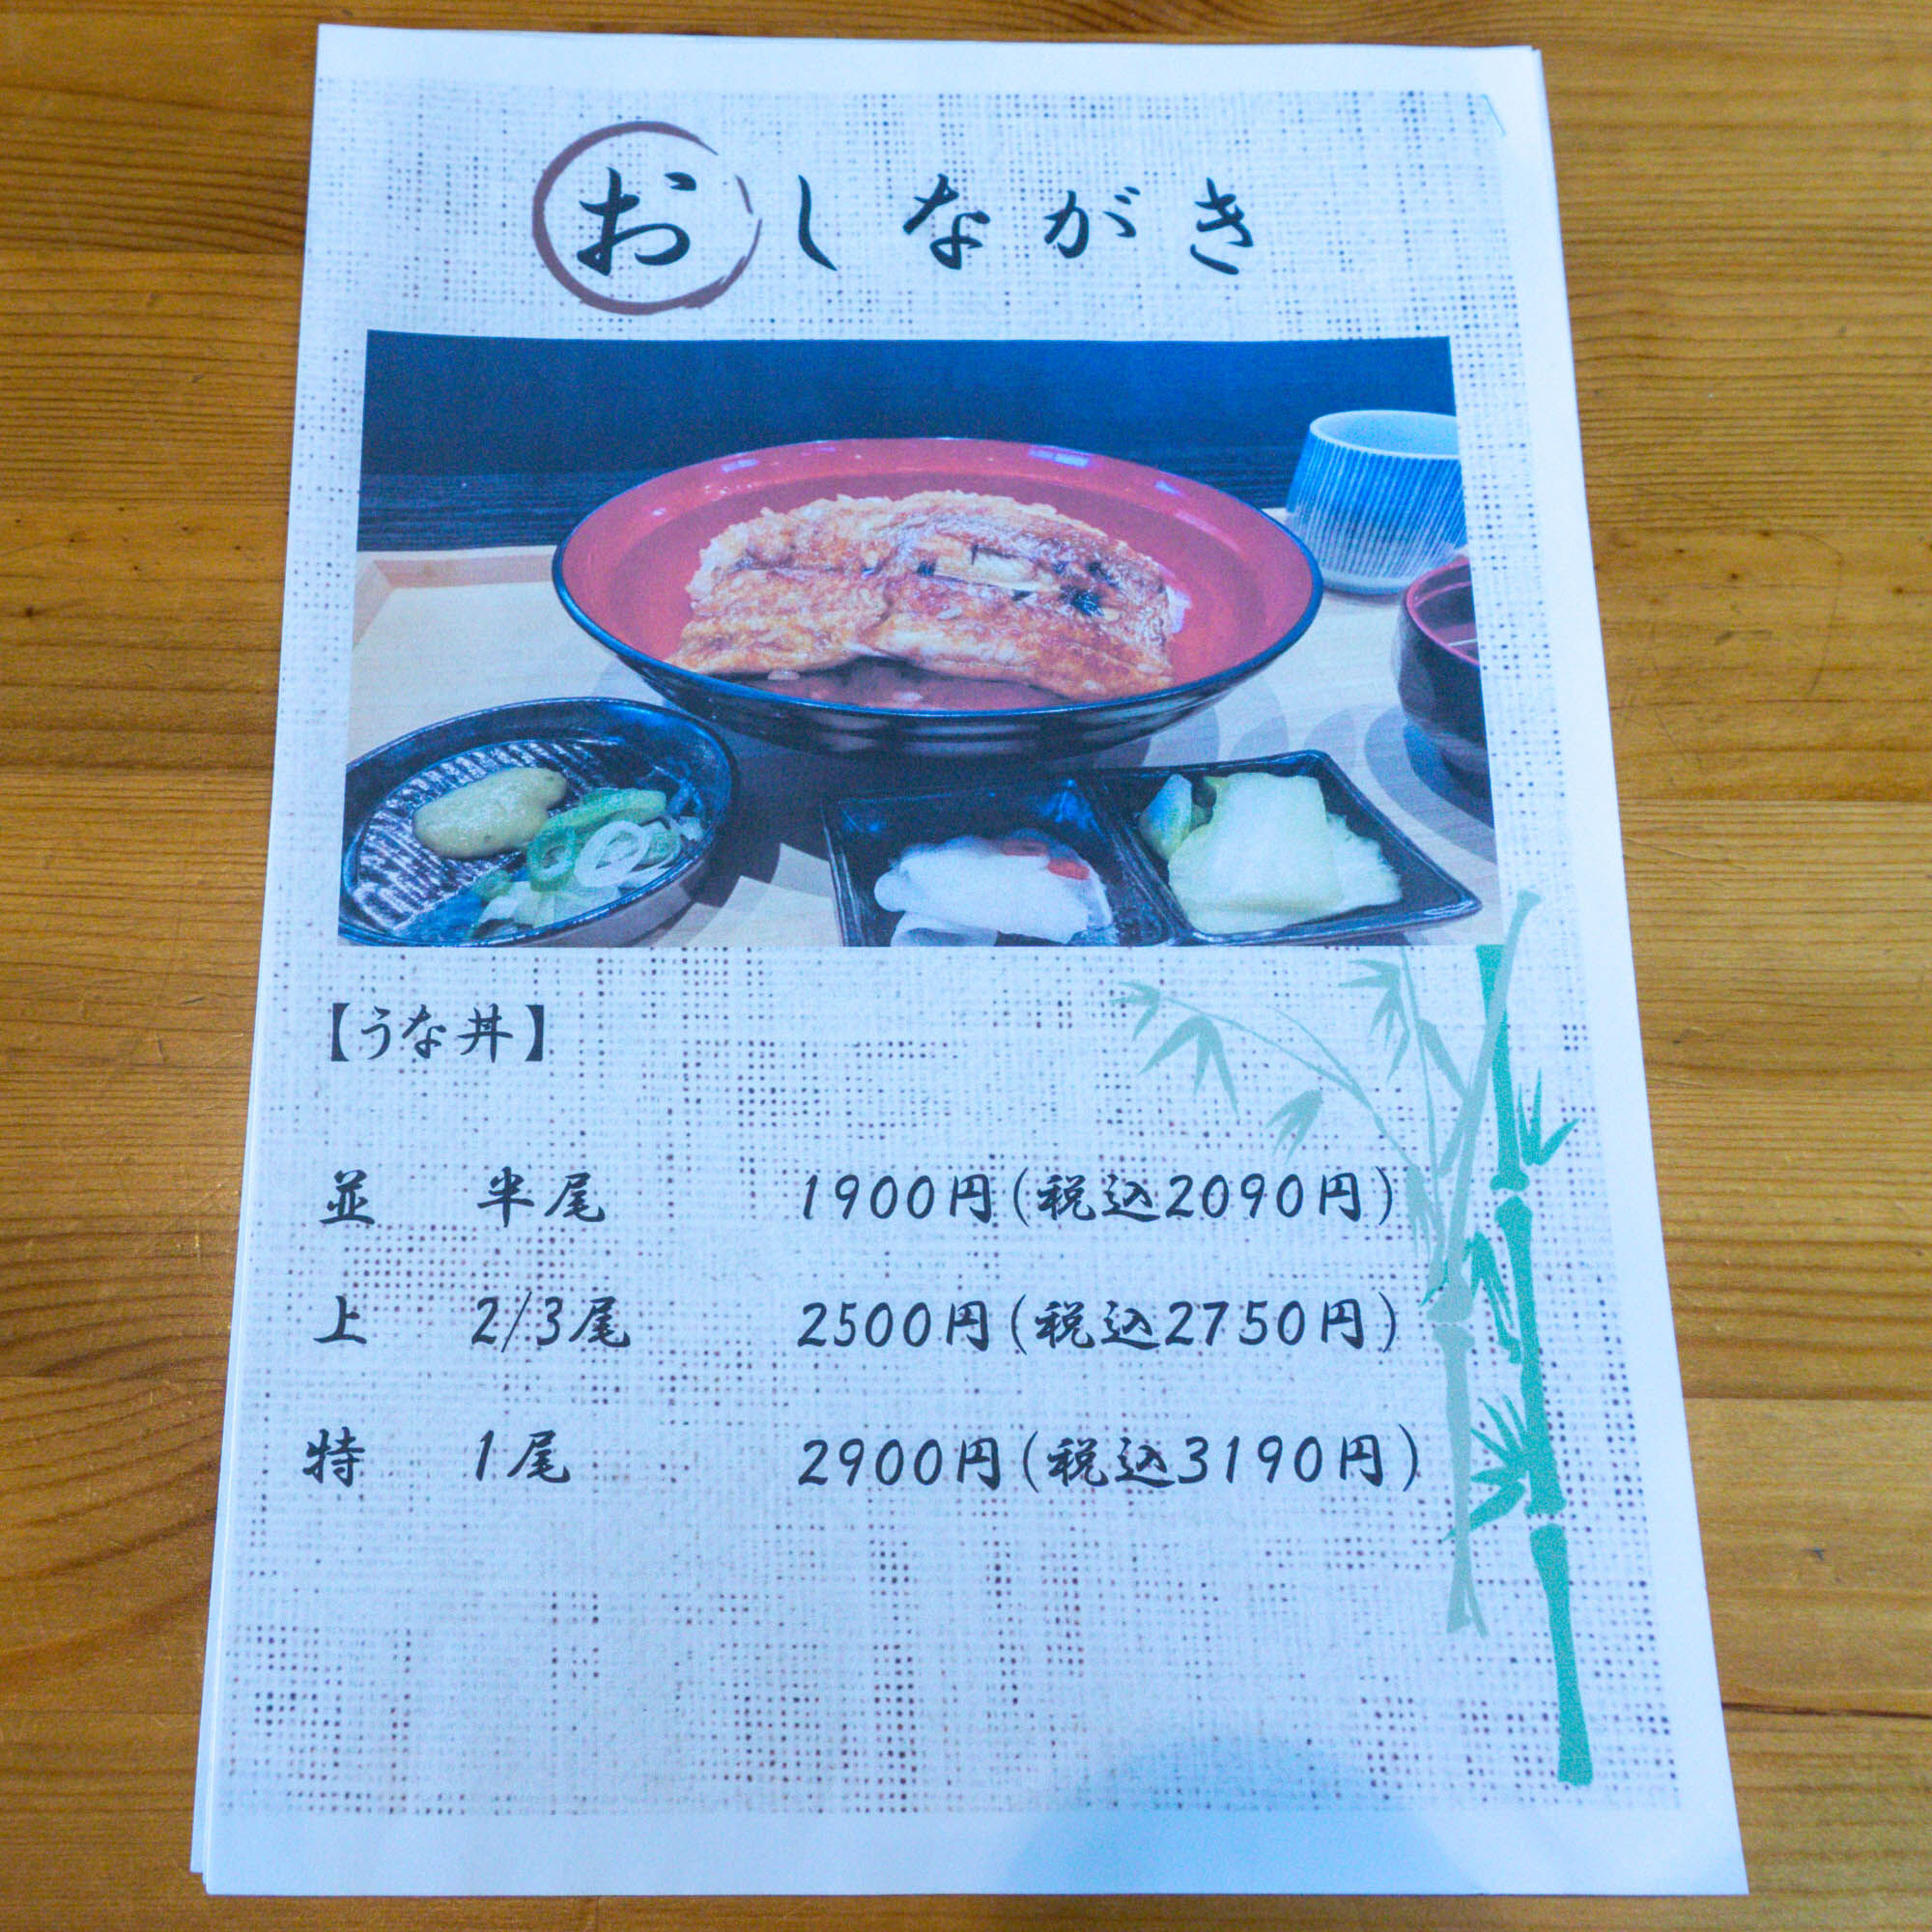 おしながき
【うな丼】
並 半尾 1900円(税込2090円)
上 2/3尾 2500円(税込2750円)
特 1尾 2900円(税込3190円)